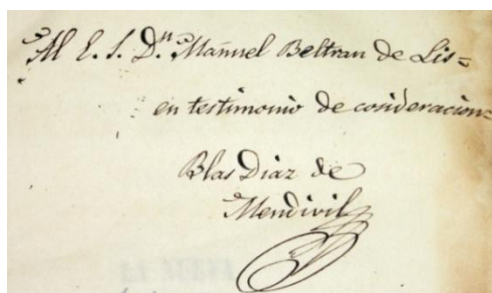 Al E. S. Dn. Manuel Beltran de Lis=
en testimonio de consideracion=
Blas Diaz de
Mendivil